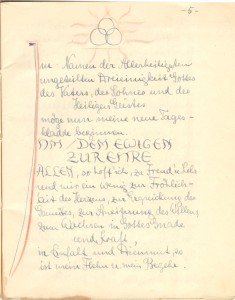 -5-
Im Namen der Allerheiligsten
ungeteilten Dreieinigkeit Gottes
des Vaters, des Sohnes und des
Heiligen Geistes
möge nun meine neue Tages-
beginnen.
DEM EWIGEN
ZUR EHRE
ALLEN, so hoff' ich, zur Freud' u.
und mir ein wenig zur Fröhlich-
keit des Herzens, zur
Gemütes, zur des Willens,
zum Wachsen in Gottes Gnade
und Kraft,
in Einfalt und Demut, so
ist mein Plan u. mein Begehr.